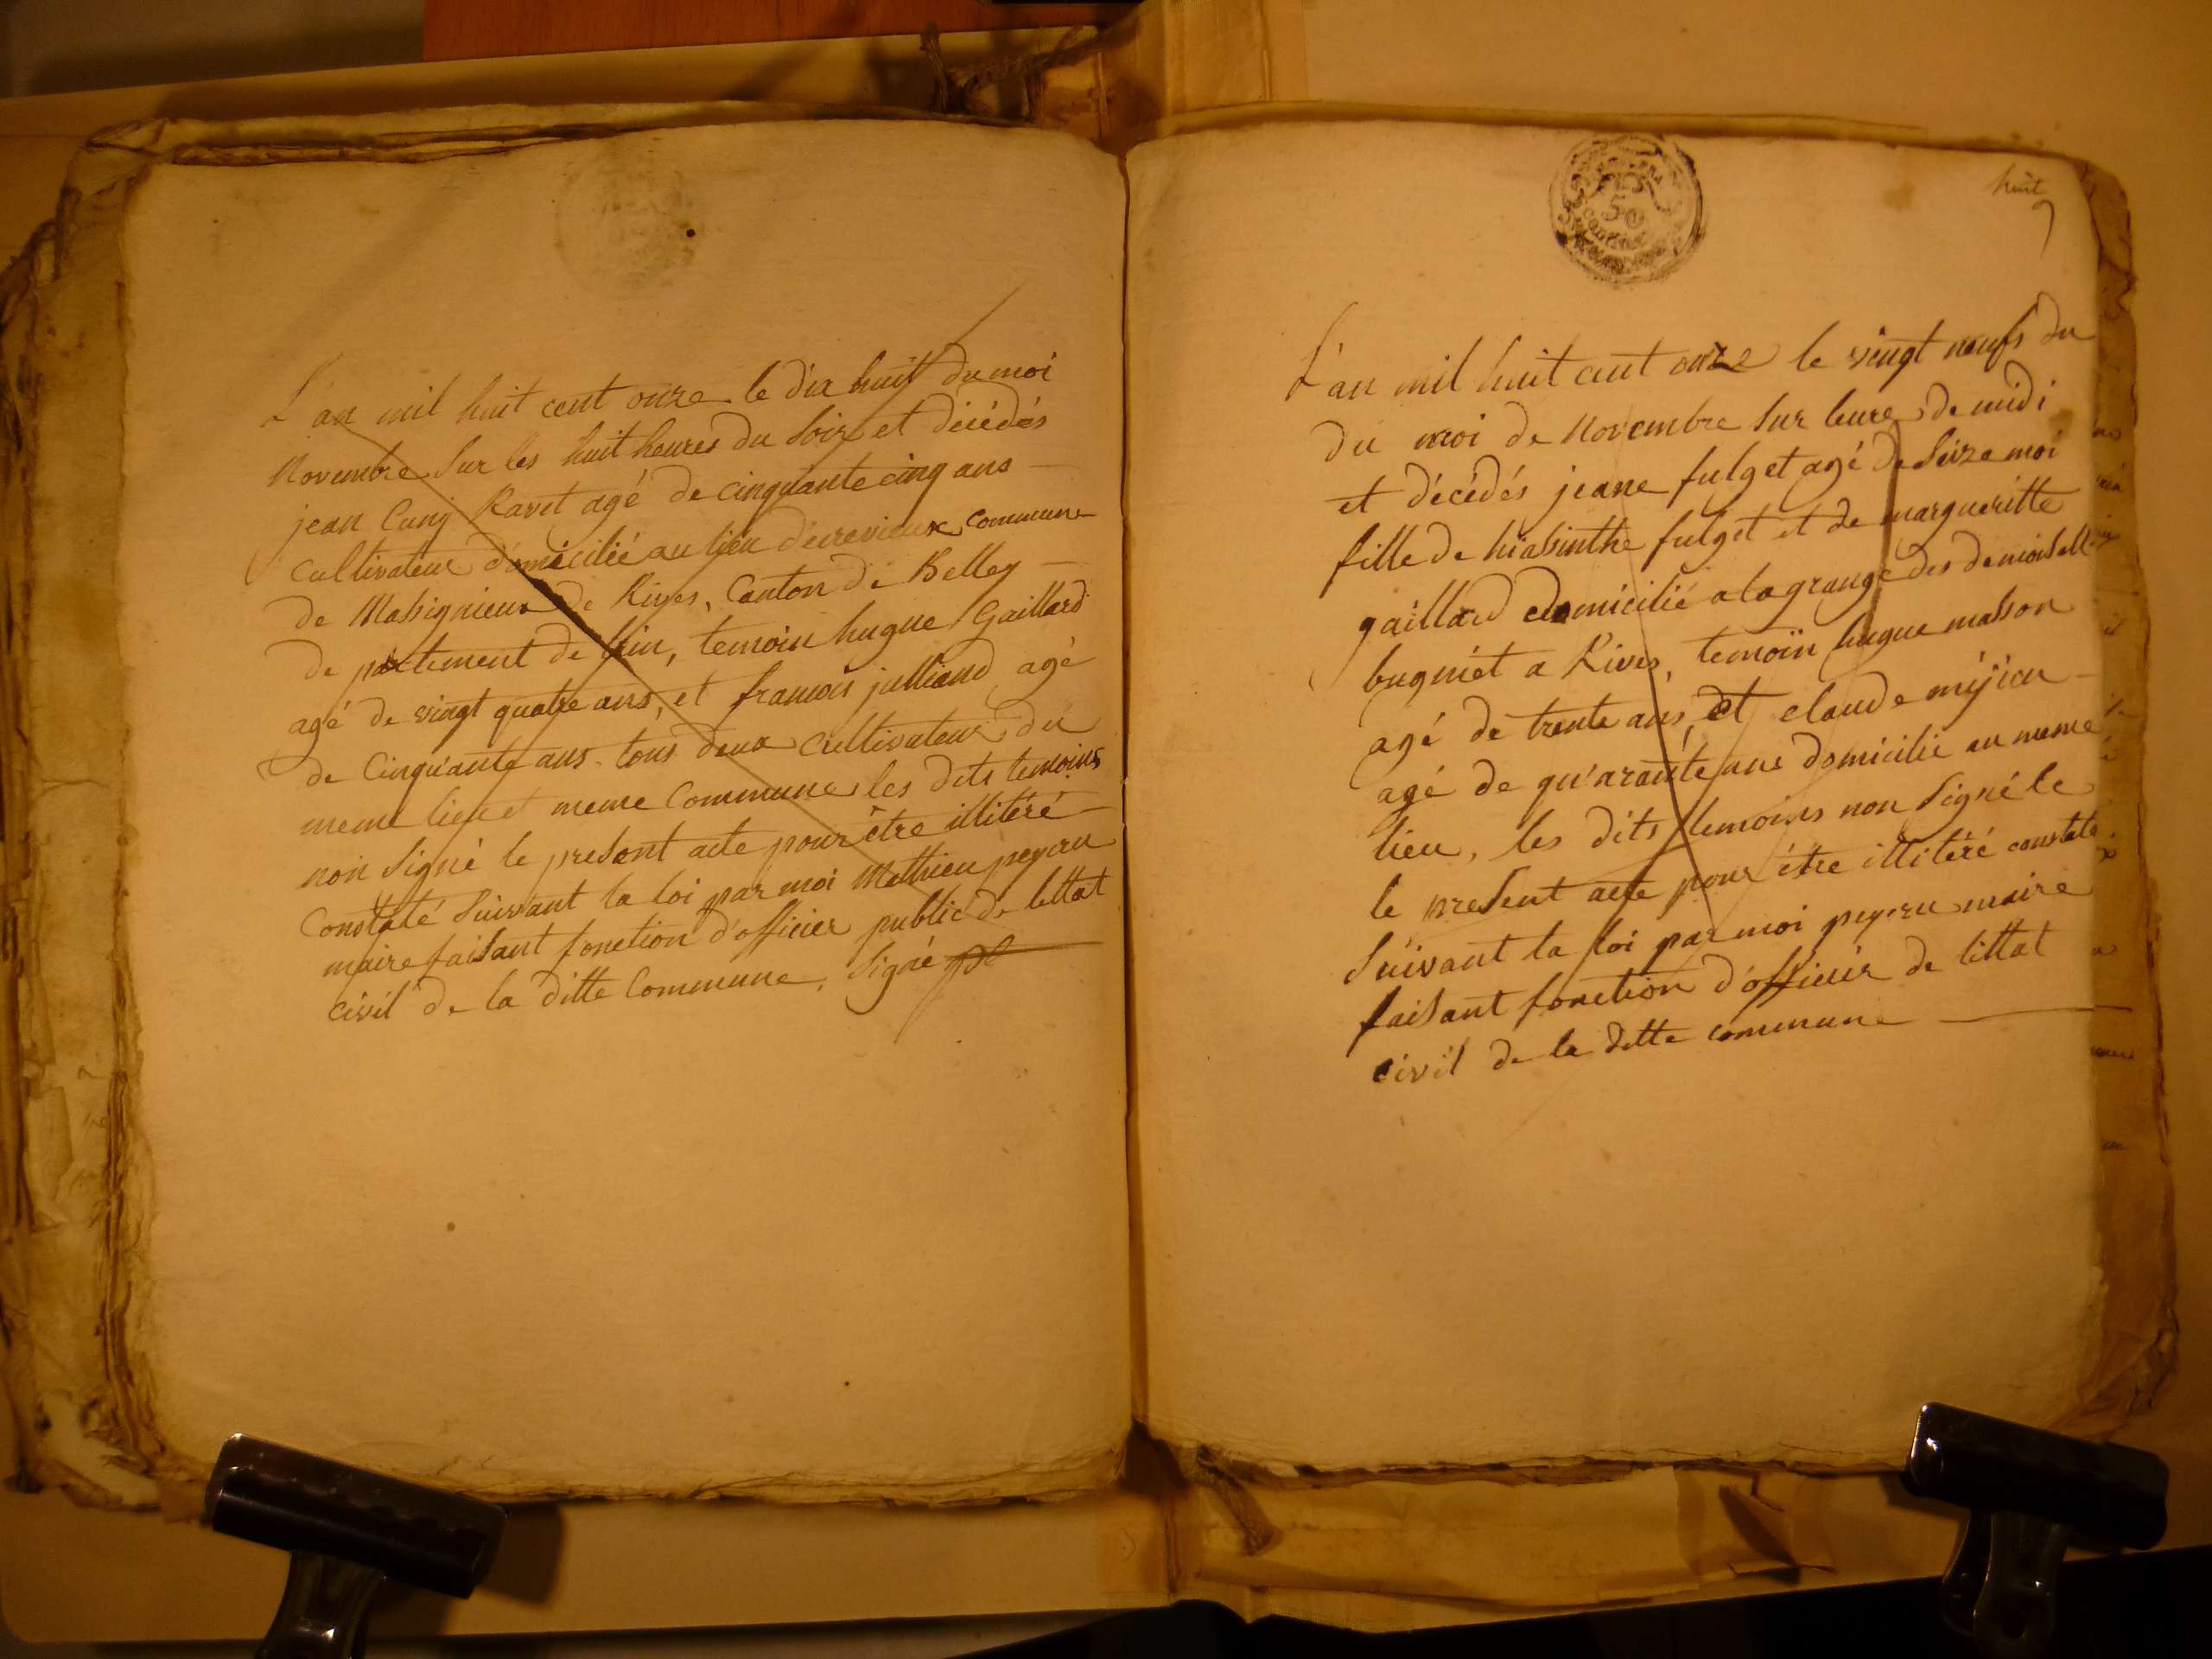 L'an mil huit cent onze le dix huit du moi
Novembre Sur les huit heures du Soir et décédés
jean Cuny Ravet agé de cinquante cinq ans
Cultivateur domicilié au lieu d'ecrevieux commune
de Massignieux de Rives, Canton de Belley
de partement de lain, temoin hugue Gaillard
agé de vingt quatre ans, et francois julliand agé
de Cinquante ans tous deux Cultivateur du
meme lieu et meme Commune les dits temoins
non Signé le present acte pour être illitéré
Constaté Suivant la loi par moi Mathieu peyeru
maire faisant fonction d'officier public de lettat
civil de la ditte Commune, Signé
huit
50
L'an mil huit cent onze le vingt neufs du
du moi de Novembre Sur leure de midi
et décédés jeane fulget agé de Seize moi
fille de hiasinthe fulget et de margueritte
gaillard domicilié a la grange des demoiselle
bugniet a Rives, temoin hugue masson
agé de trente ans, et claude mijieu
agé de qu'arante ans domicilié au meme
lieu, les dits temoins non Signé le
le present acte pour être illitéré constaté
Suivant la loi par moi peyeru maire
faisant fonction d'officier de lettat
civil de la ditte commune